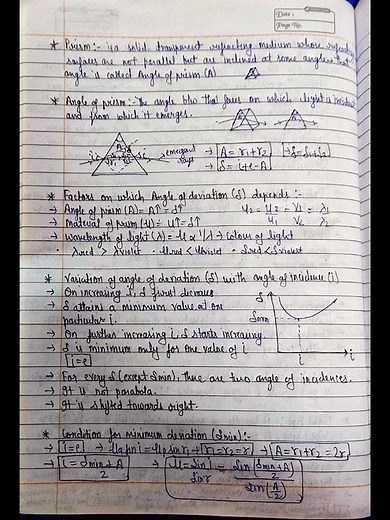 Date :
Page No.
* Prism :- is a solid transparent refracting medium whose refracting
surfaces are not parallel but are inclined at some angle that
angle is called Angle of prism (A)
* Angle of prism :- The angle btw that faces on which light is incident
and from which it emerges.
A
emergent
rays
→ A = r₁+r₂
→ δ = δ₁+δ₂
→ δ = i+e-A
* Factors on which Angle of deviation (δ) depends :-
→ Angle of prism (A) = A↑ = δ↑
→ Material of prism (μ) = μ↑ = δ↑
→ wavelength of light (λ) = μ α 1/λ → Colour of light
λred > λviolet · μred < μviolet · δred < δviolet
* Variation of angle of deviation (δ) with angle of incidence (i)
→ On increasing i, δ first decrease
→ δ attains a minimum value at one
particular i.
→ On further increasing i, δ starts increasing.
→ δ is minimum only for one value of i
i=e
δ
δmin
i
→ For every δ (except δmin), there are two angle of incidences.
→ It is not parabola.
→ It is shifted towards right.
* Condition for minimum deviation (δmin) :-
→ i=e → r₁=r₂=r → A = r₁+r₂ = 2r
→ i = δmin+A / 2 → μ = sin i / sin r = sin (δmin+A / 2) / sin (A/2)